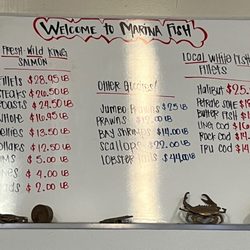 Welcome to Marina Fish!
Fresh Wild King
Salmon
Fillets $28.95 LB
Steaks $26.50 LB
Roasts $24.50 LB
Whole $16.95 LB
Bellies $13.50 LB
Collars $12.50 LB
$5.00 LB
$4.00 LB
$2.00 LB
Other Goodies!
Jumbo Prawns $25 LB
Prawns LB
Bay Shrimps $14.00 LB
Scallops $22.00 LB
Lobster $44.00 LB
Local White Fish
Fillets
Halibut $25.
Petrale Sole
Butter Fish
Ling Cod $16
Rock Cod $14
Tru Cod $14